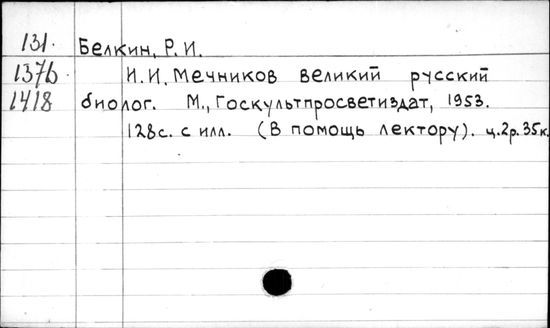 131. Белкин, Р. И.
1376. И. И. Мечников великий русский
1418 биолог. М., Госкультпросветиздат, 1953.
128с. с илл. (В помощь лектору). ц.2р.35к.